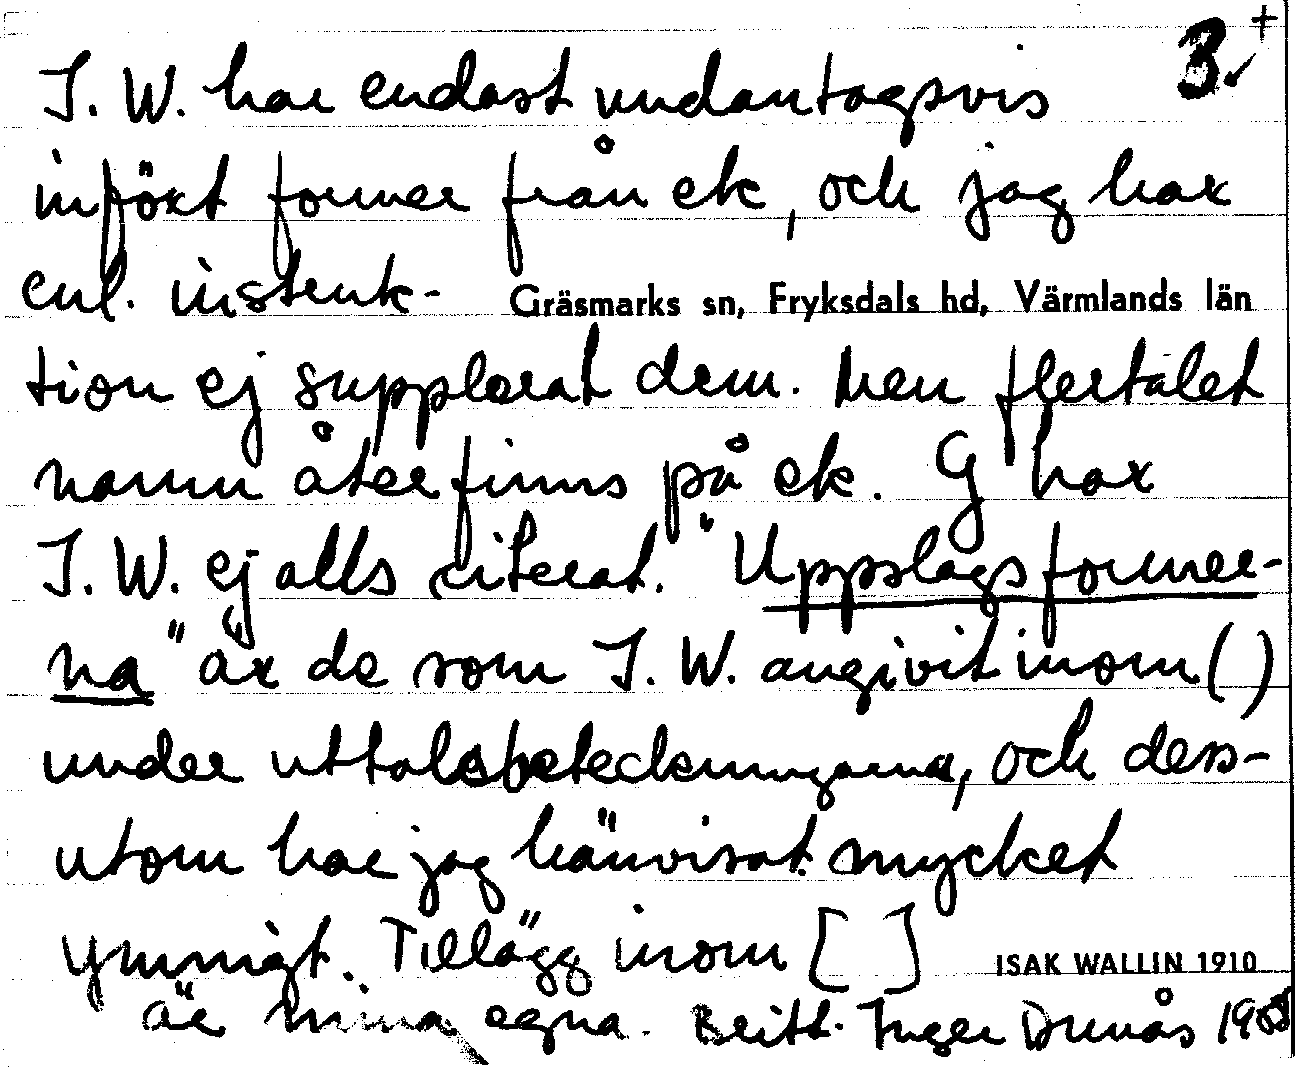 3 +
I. W. har endast undantagsvis
infört former från ek, och jag har
enl. instruk-
Gräsmarks sn, Fryksdals hd, Värmlands län
tion ej supplerat dem. Men flertalet
namn återfinns på ek. G har
I. W. ej alls citerat. "Uppslagsformer-
na" är de som I. W. angivit inom ( )
under uttalsbeteckningarna, och dess-
utom har jag hänvisat mycket
ymnigt. Tillägg inom [ ]
ISAK WALLIN 1910
är mina egna. Britt-Inger